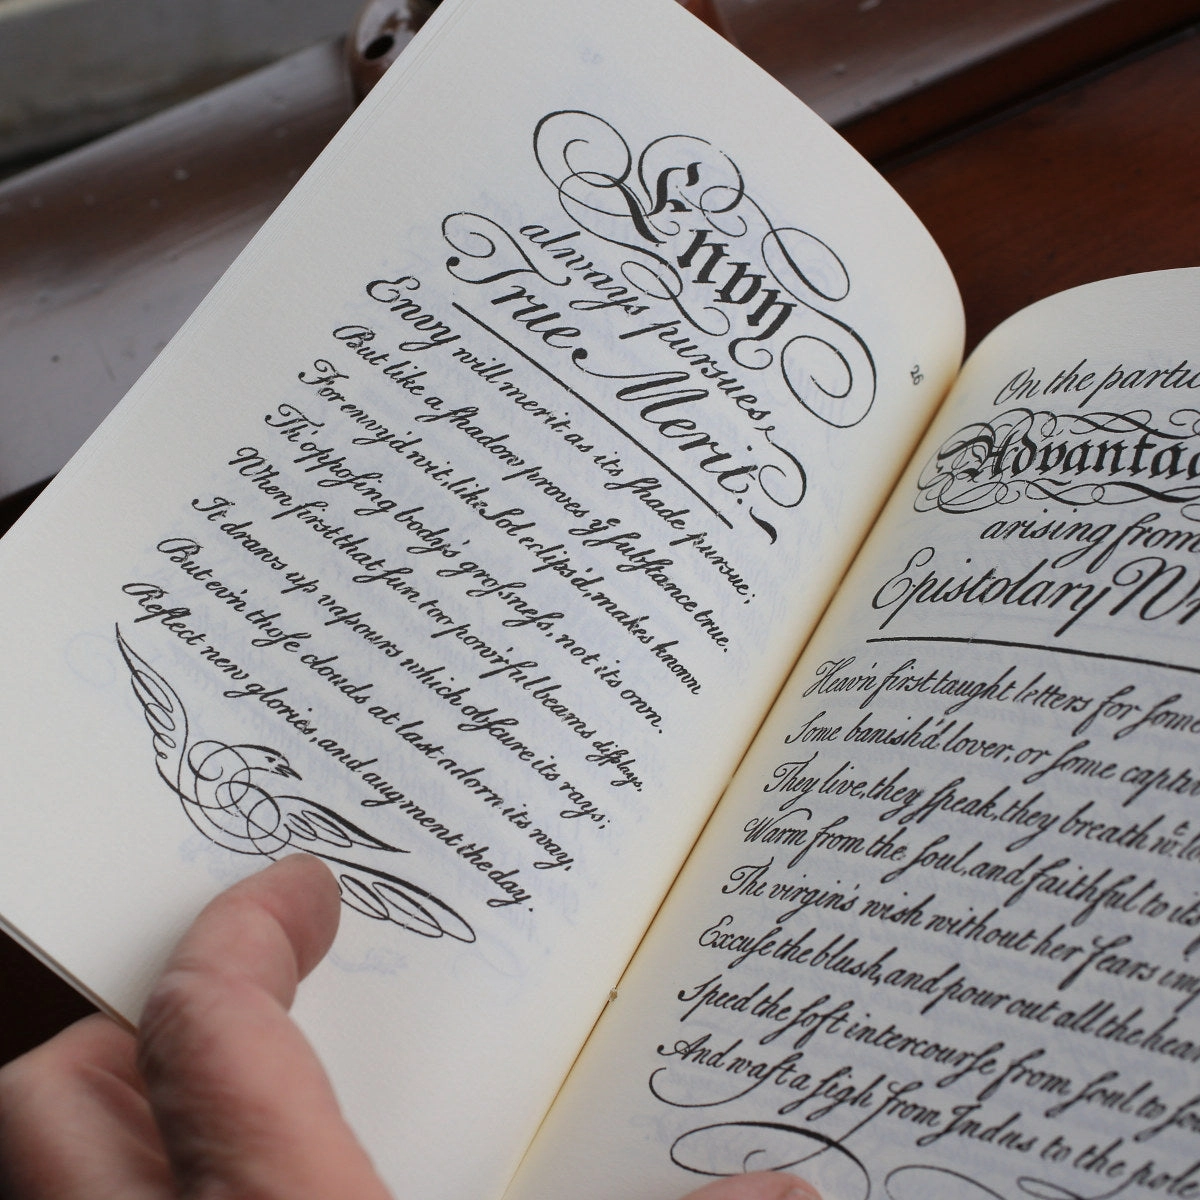 26
Envy
always pursues
True Merit.
Envy will merit as its ſhade purſue;
But like a ſhadow proves yͤ ſubſtance true.
For envy'd wit, like Sol eclips'd, makes known
Th' oppoſing body's groſsneſs, not its own.
When first that ſun too pow'rful beams diſplays,
It draws up vapours which obſcure its rays;
But ev'n thoſe clouds at last adorn its way,
Reflect new glories, and augment the day.
On the
Advantag
arising from
Epistolary
Heav'n first taught letters for
Some baniſh'd lover, or ſome
They live, they ſpeak, they breath wͭ.
Warm from the ſoul, and faithful to
The virgin's wiſh without her fears
Excuſe the bluſh, and pour out all the
Speed the ſoft intercourſe from ſoul to
And waft a ſigh from Indus to the pole